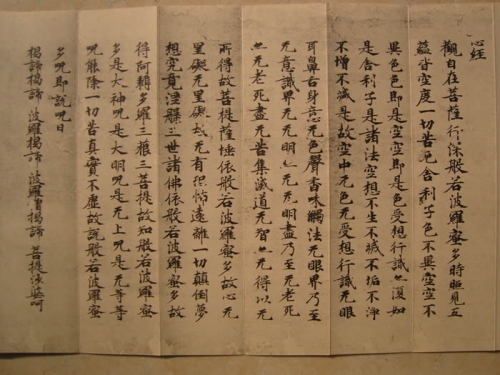 心経
觀自在菩薩行深般若波羅蜜多時照見五
蘊皆空度一切苦厄舍利子色不異空空不
異色色即是空空即是色受想行識亦復如
是舍利子是諸法空想不生不滅不垢不淨
不增不減是故空中无色无受想行識无眼
耳鼻舌身意无色聲香味觸法无眼界乃至
无意識界无无明亦无无明盡乃至无老死
亦无老死盡无苦集滅道无智亦无得以无
所得故菩提薩埵依般若波羅蜜多故心无
罣礙无罣礙故无有恐怖遠離一切顛倒夢
想究竟涅槃三世諸佛依般若波羅蜜多故
得阿耨多羅三藐三菩提故知般若波羅蜜
多是大神呪是大明呪是无上呪是无等等
呪能除一切苦真實不虛故說般若波羅蜜
多呪即說呪曰
揭諦揭諦 波羅揭諦 波羅僧揭諦 菩提娑婆訶